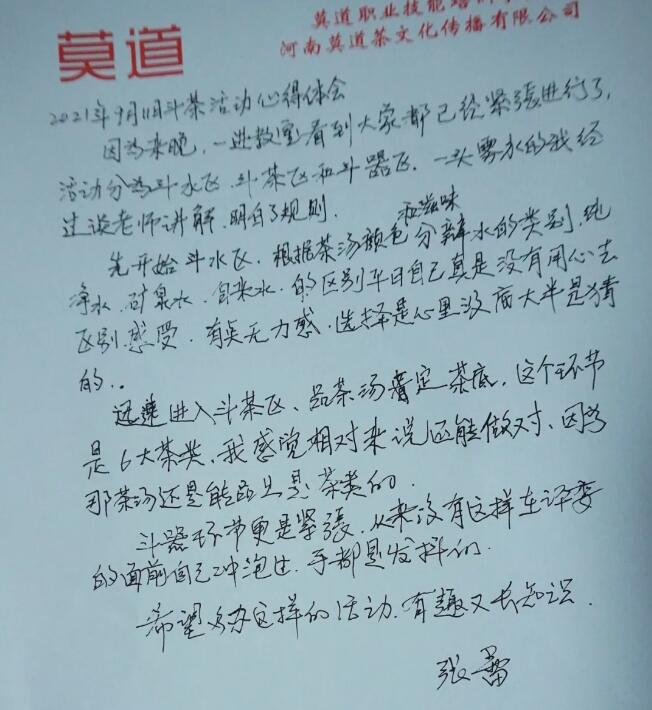 莫道
莫道职业技能培训学
河南莫道茶文化传播有限公司
2021年9月11日斗茶活动心得体会
因为来晚,一进教室看到大家都已经紧張进行了,
活动分为斗水区、斗茶区和斗器区.一头雾水的我经
过谈老师讲解,明白了规则.
先开始斗水区.根据茶汤颜色和滋味分辨水的类别,纯
净水.矿泉水.自来水.的区别平日自己真是没有用心去
区别感受.有点无力感.选择是心里没底大半是猜
的..
迅速进入斗茶区、品茶汤番定茶底.这个环节
是6大茶类、我感觉相对来说还能做对、因为
那茶汤还是能品出是茶类的.
斗器环节更是紧張.从来没有这样在评委
的面前自己冲泡过.手都是发抖的.
希望多办这样的活动.有趣又长知识.
张蕾